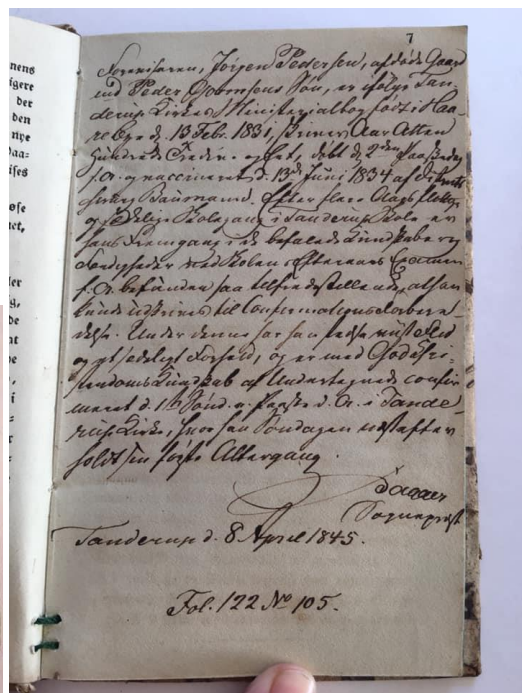 nens
igere
der
den
nye
daa-
ises
øse
net,
der
7
Foreviseren, Jørgen Pedersen, afdøde Gaard
md Peder Søn, er ifølge Tan
derup Kirkes Ministerialbog født i Haa-
re Bye d. 13 Feb. 1831, skriver Aar Atten
Hundrede Tredive og Eet, døbt d. 2den Paaskedag
s. A. og vaccineret d. 13de Juni 1834 af Districts
chirurg Baumann. Efter flere Aars flittig
og sædelig Skolegang i Tanderup Skole er
hans Fremgang i de befalede Kundskaber og
Færdigheder ved Skolens Efteraars Examen
f. A. befunden saa tilfredsstillende, at han
kunde indskrives til Confirmationsforbere-
delse. Under denne har han stedse viist Flid
og et sædeligt Forhold, og er med God Chri-
stendoms Kundskab af Undertegnede confir
meret d. 1ste Sønd. e. Paaske d. A. i Tande-
rup Kirke, hvor han Søndagen næstefter
holdt sin første Altergang.
Sognepræst
Tanderup d. 8 April 1845.
Fol. 122 No 105.